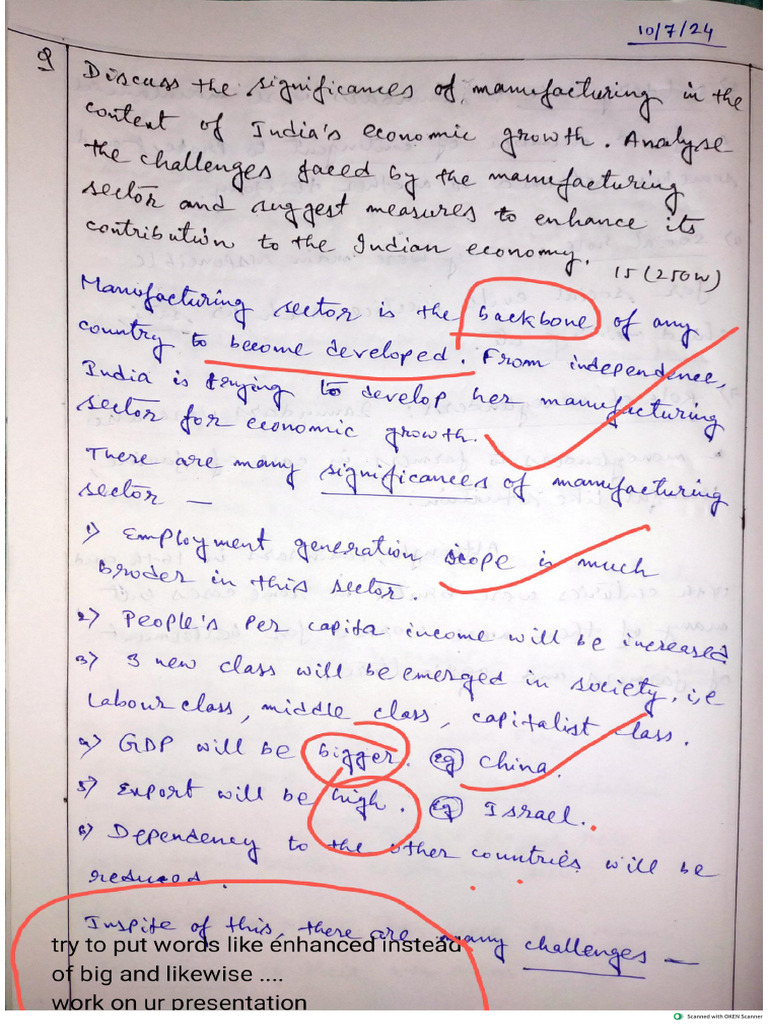 10/7/24
Q Discuss the significances of manufacturing in the
context of India's economic growth. Analyse
the challenges faced by the manufacturing
sector and suggest measures to enhance its
contribution to the Indian economy.
15 (250W)
Manufacturing sector is the backbone of any
country to become developed. From independence,
India is trying to develop her manufacturing
sector for economic growth.
There are many significances of manufacturing
sector —
1) Employment generation scope is much
broder in this sector.
2) People's Per capita income will be increased
3) 3 new class will be emerged in society, i,e
Labour class, middle class, capitalist class.
4) GDP will be bigger. eg China.
5) Export will be high. eg Israel.
6) Dependency to the other countries will be
reduced.
Inspite of this, there are many challenges —
try to put words like enhanced instead
of big and likewise ....
work on ur presentation
Scanned with OKEN Scanner